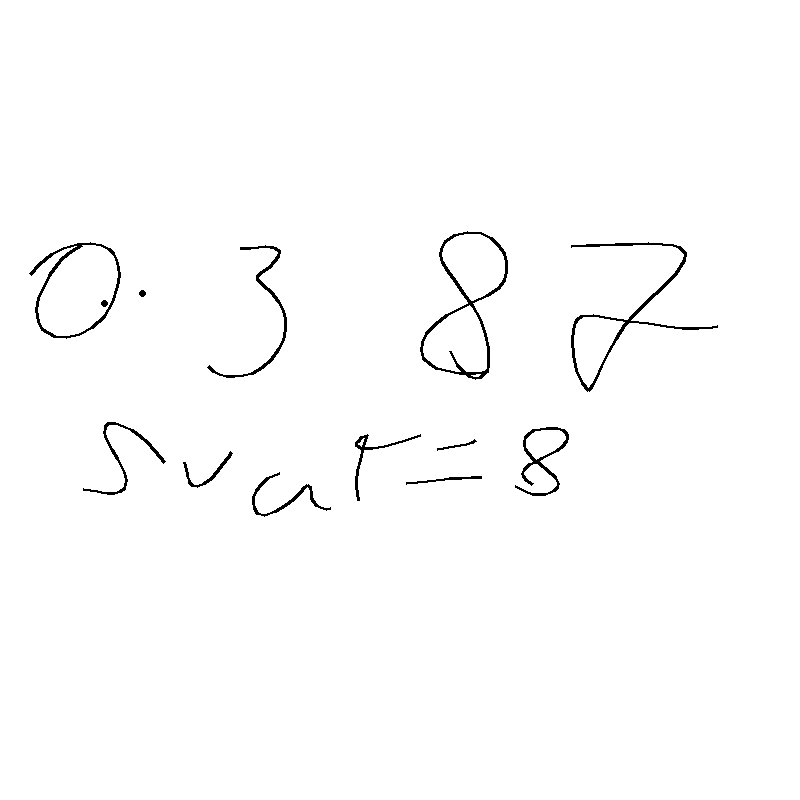 0.387
svar=8